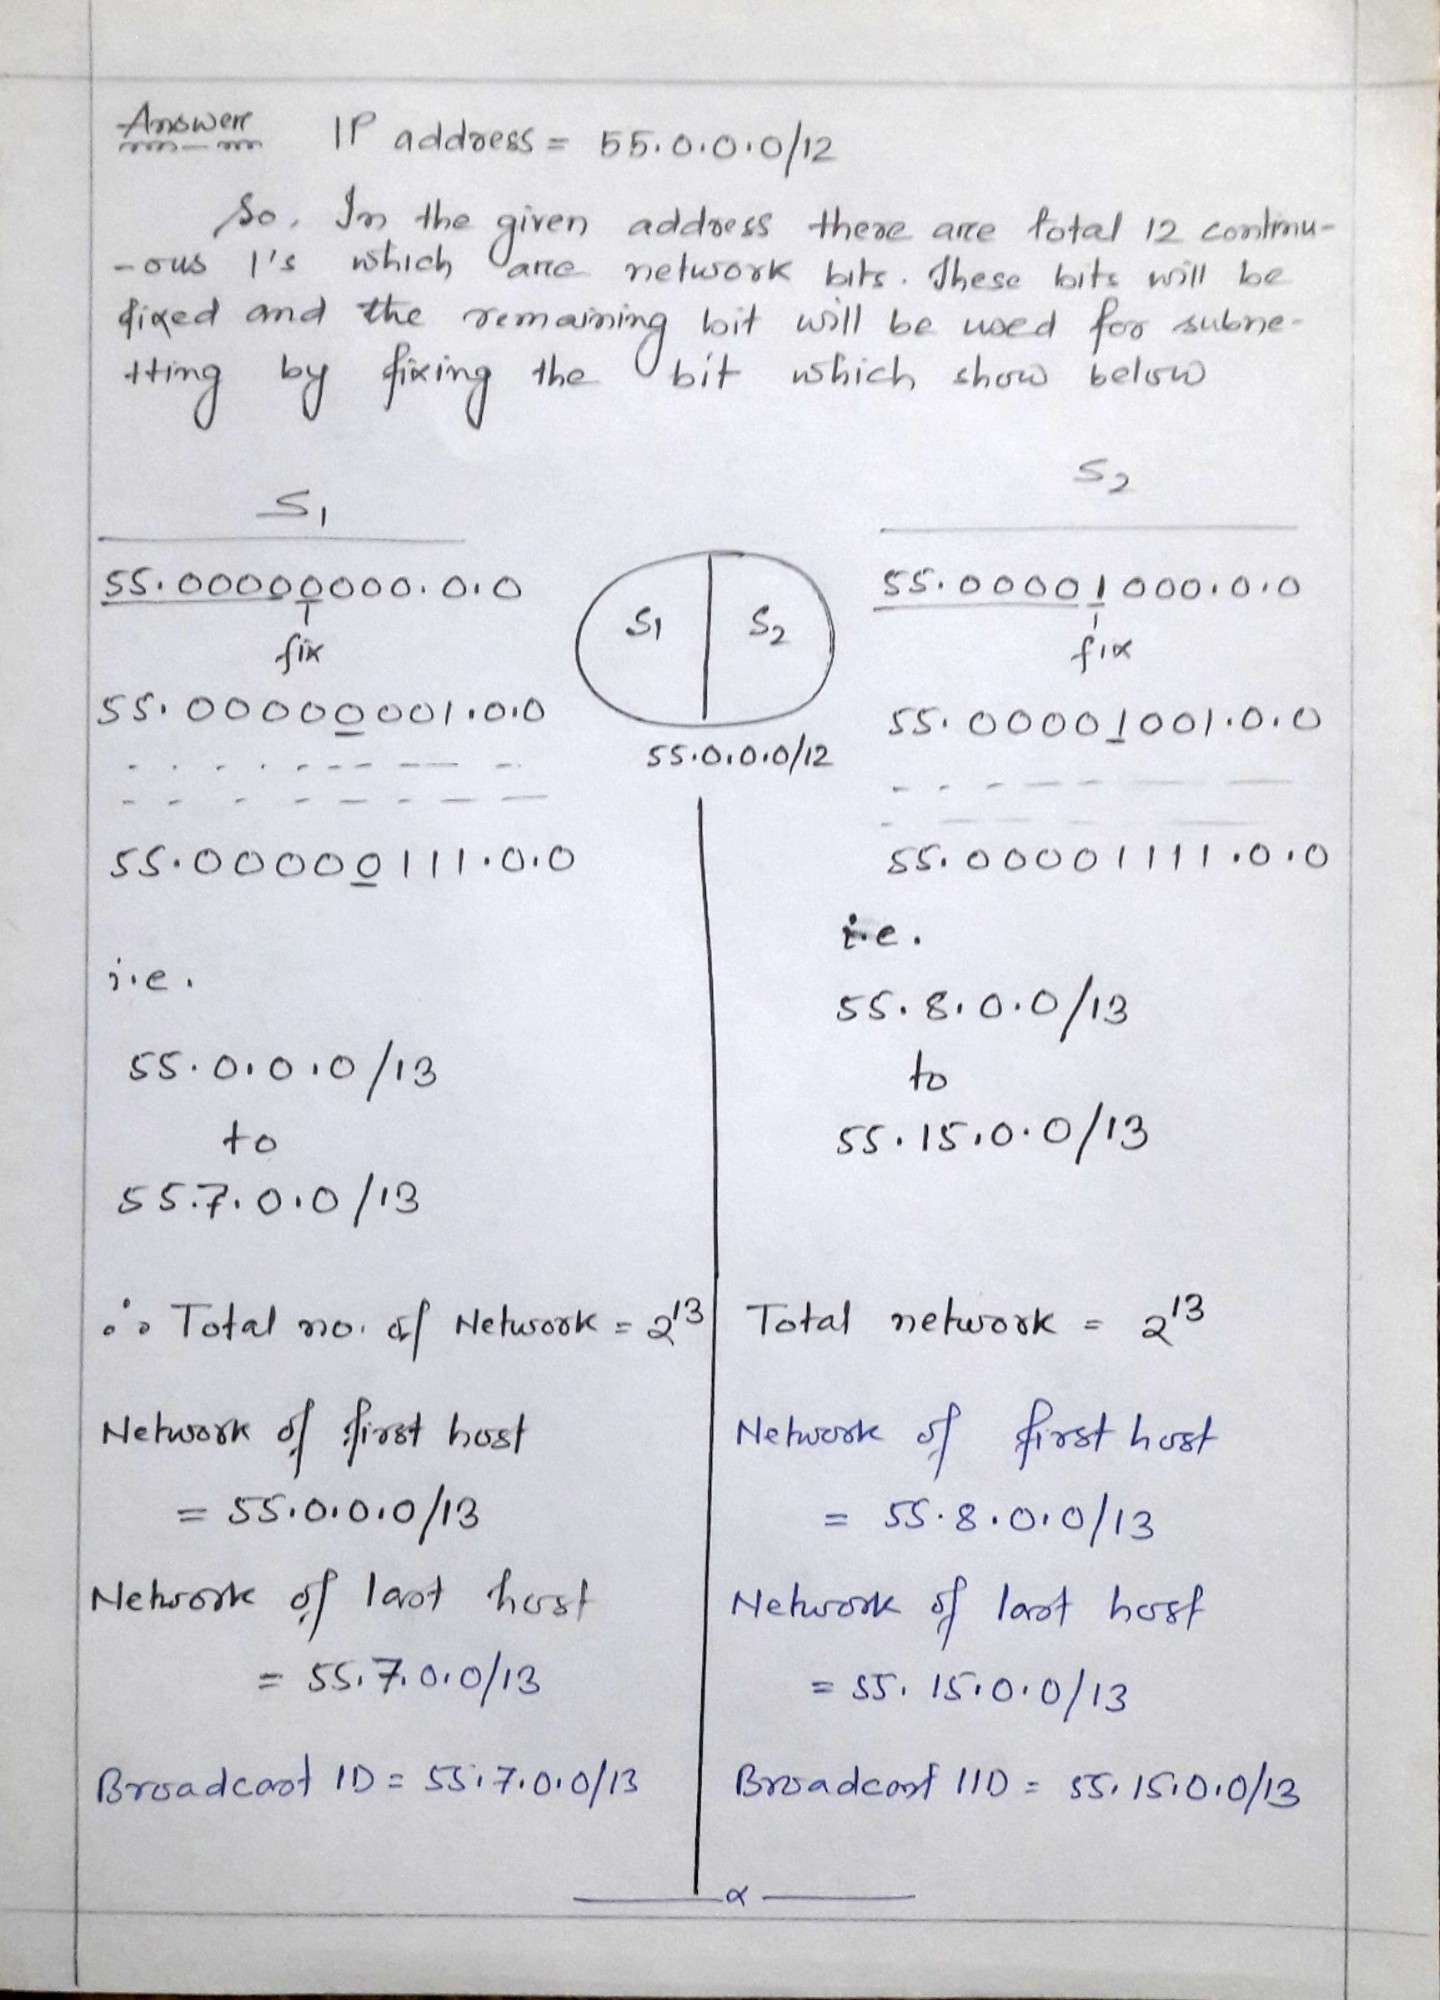 Answer IP address = 55.0.0.0/12
So, In the given address there are total 12 continu-
-ous 1's which are network bits. These bits will be
fixed and the remaining bit will be used for subne-
tting by fixing the bit which show below
S1
55.00000000.0.0
fix
55.00000001.0.0
55.00000111.0.0
i.e.
55.0.0.0/13
to
55.7.0.0/13
∴ Total no. of Network = 2^13
Network of first host
= 55.0.0.0/13
Network of last host
= 55.7.0.0/13
Broadcast ID = 55.7.0.0/13
S1 S2
55.0.0.0/12
S2
55.00001000.0.0
fix
55.00001001.0.0
55.00001111.0.0
i.e.
55.8.0.0/13
to
55.15.0.0/13
Total network = 2^13
Network of first host
= 55.8.0.0/13
Network of last host
= 55.15.0.0/13
Broadcast IID = 55.15.0.0/13